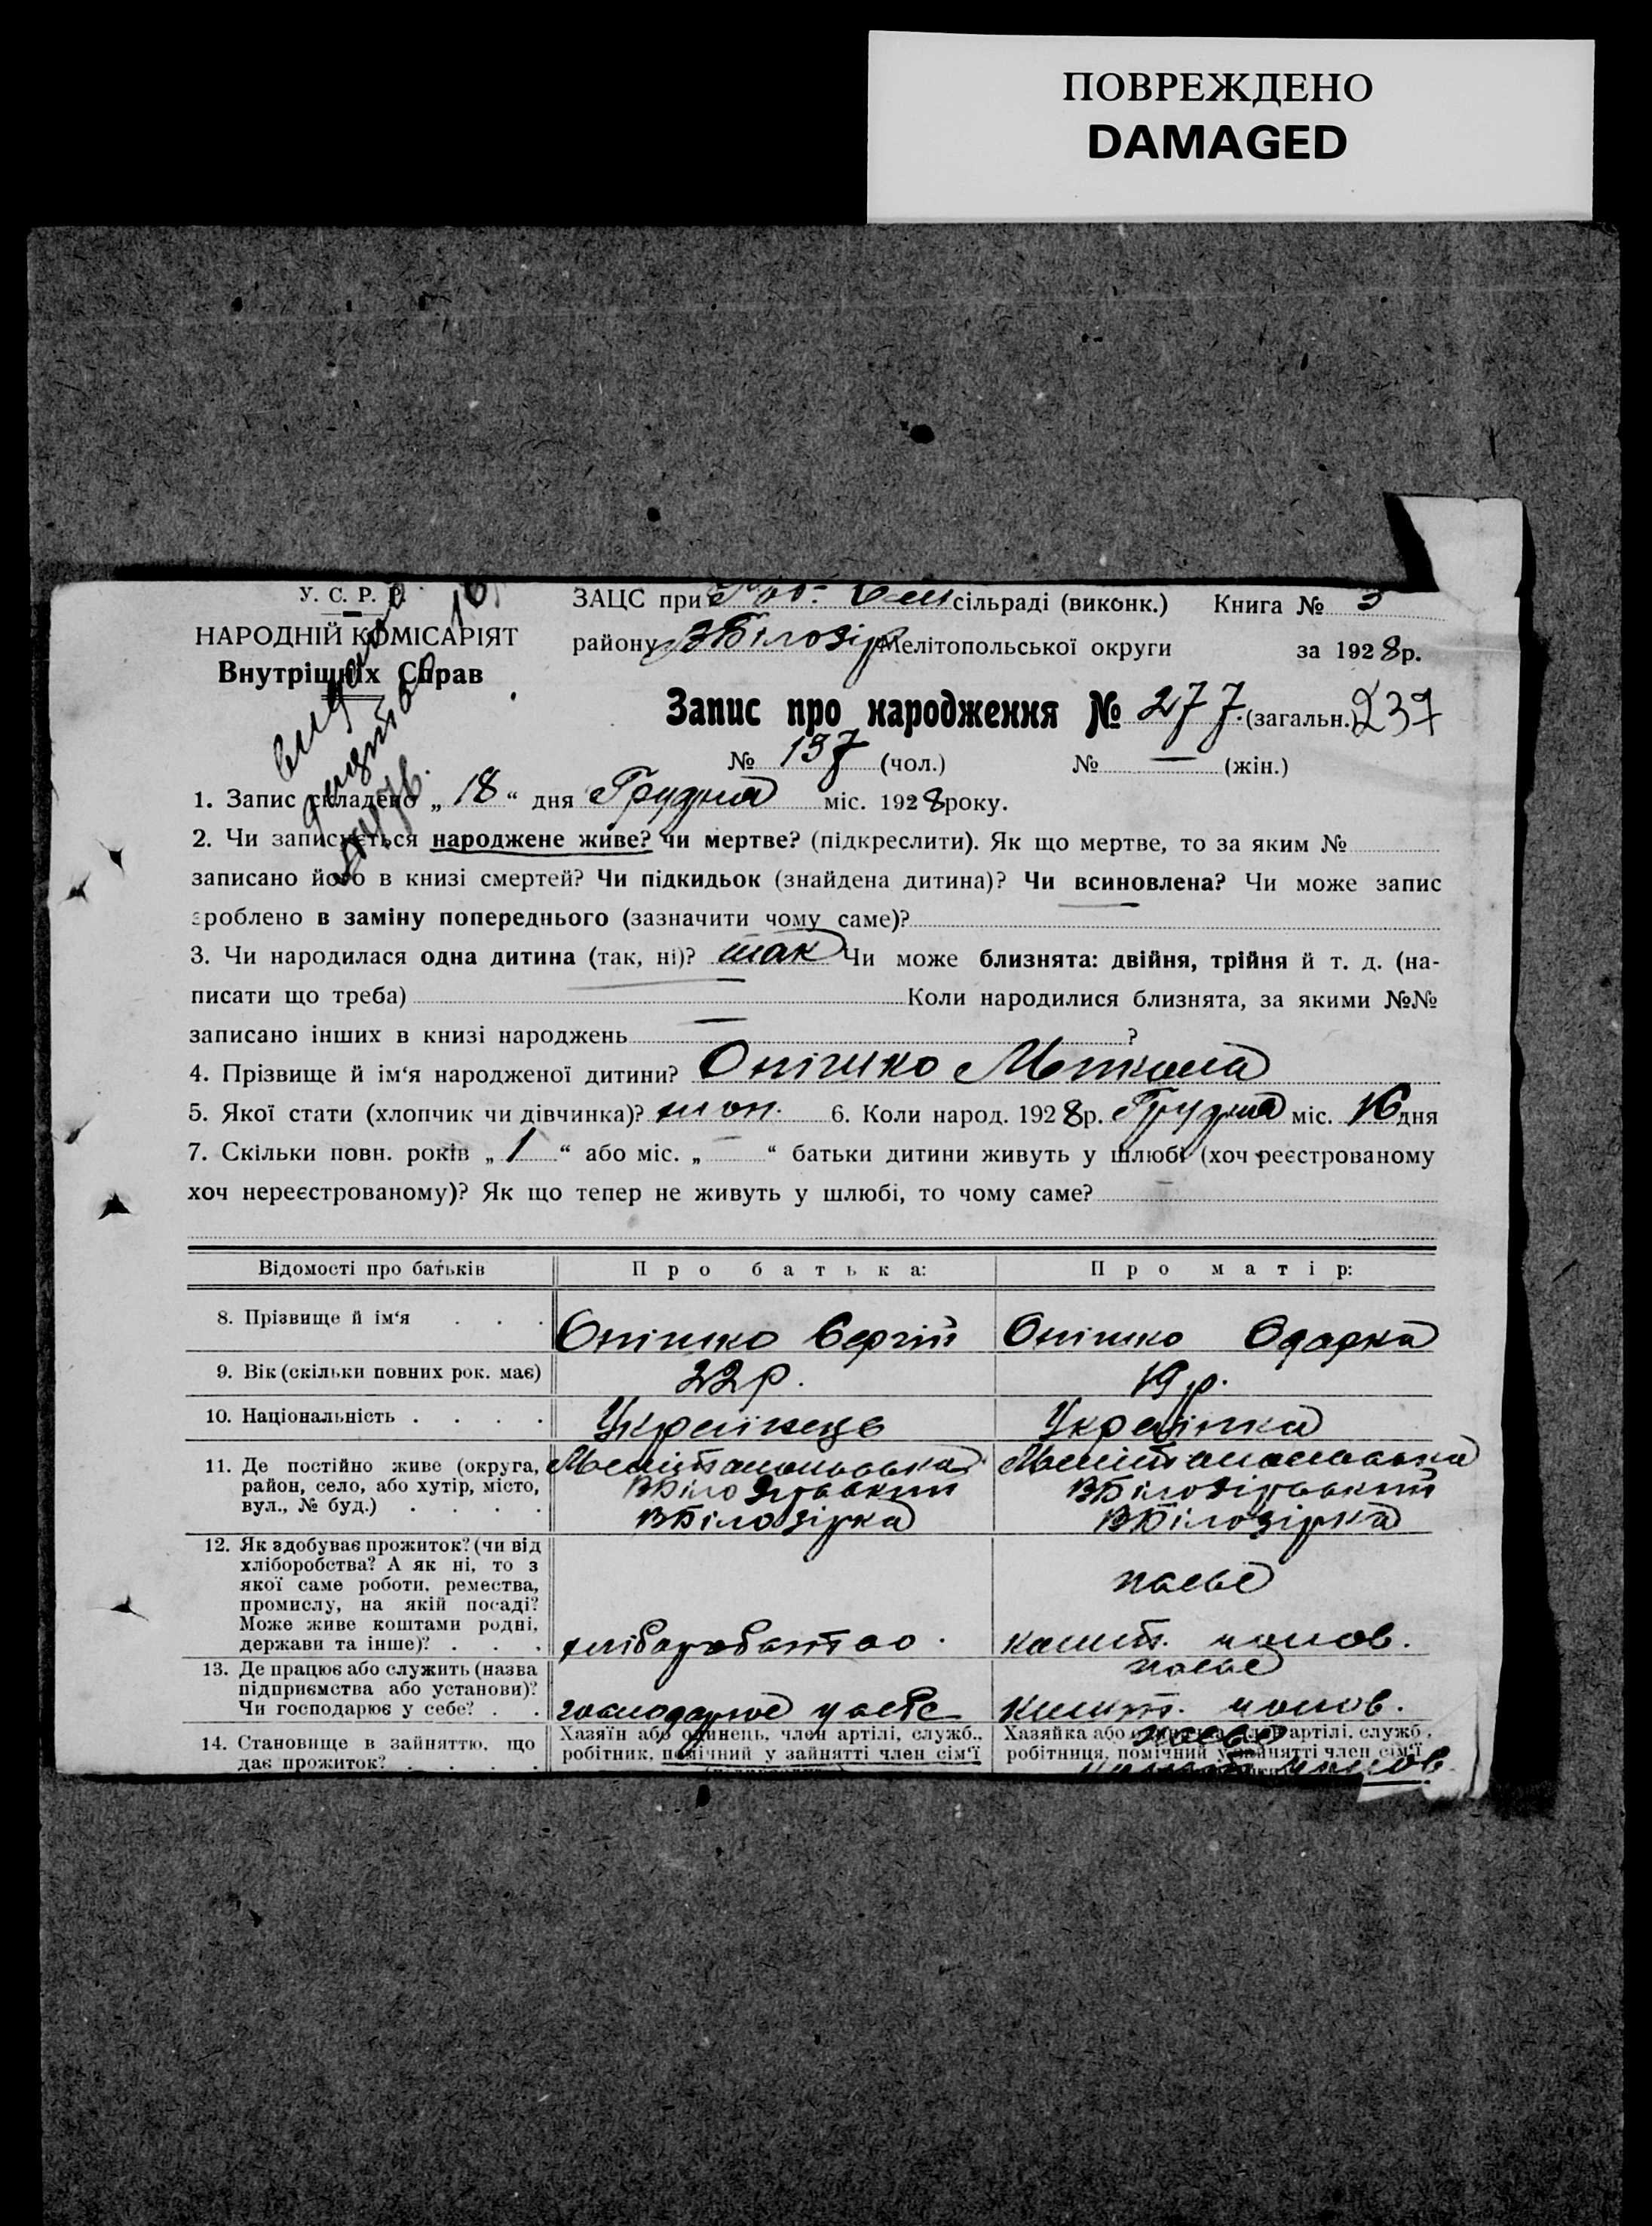 ПОВРЕЖДЕНО
DAMAGED
У. С. Р. Р.
НАРОДНІЙ КОМІСАРІЯТ
Внутрішніх Справ
ЗАЦС при сільраді (виконк.) Книга № 3
району ВБілозір Мелітопольської округи за 1928р.
Запис про народження № 277. (загальн.) 237
№ 137 (чол.) № — (жін.)
1. Запис складено „ 18 “ дня Грудня міс. 1928року.
2. Чи записується народжене живе? чи мертве? (підкреслити). Як що мертве, то за яким №
записано його в книзі смертей? Чи підкидьок (знайдена дитина)? Чи всиновлена? Чи може запис
зроблено в заміну попереднього (зазначити чому саме)?
3. Чи народилася одна дитина (так, ні)? так Чи може близнята: двійня, трійня й т. д. (на-
писати що треба) — Коли народилися близнята, за якими №№
записано інших в книзі народжень — ?
4. Прізвище й ім‘я народженої дитини? Онішко Микола
5. Якої стати (хлопчик чи дівчинка)? 6. Коли народ. 1928р. Грудня міс. 16 дня
7. Скільки повн. років „ 1 “ або міс. „ — “ батьки дитини живуть у шлюбі (хоч реєстрованому
хоч нереєстрованому)? Як що тепер не живуть у шлюбі, то чому саме? —
Відомості про батьків Про батька: Про матір:
8. Прізвище й ім‘я . . . Онішко Сергій Онішко Одарка
9. Вік (скільки повних рок. має) 22р. 19р.
10. Національність . . . . Українець Українка
11. Де постійно живе (округа, Мелітопольська Мелітопольська
район, село, або хутір, місто, ВБілозірський ВБілозірський
вул., № буд.) . . . . ВБілозірка ВБілозірка
12. Як здобуває прожиток? (чи від
хліборобства? А як ні, то з
якої саме роботи, ремества,
промислу, на якій посаді?
Може живе коштами родні,
держави та інше)? . . . хліборобство. кошт. чолов.
13. Де працює або служить (назва
підприємства або установи)?
Чи господарює у себе? . . господарює у себе кошт. чолов.
14. Становище в зайняттю, що
дає прожиток? . . . .
Хазяїн або одинець, член артілі, служб.,
робітник, помічний у зайнятті член сім‘ї
Хазяйка або одиначка, член артілі, служб.,
робітниця, помічний у зайнятті член сім‘ї
чолов.